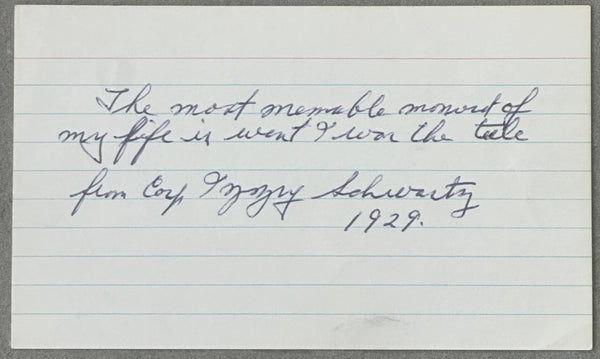 The most memable moment of
my life is went I won the title
from Corp Izzy Schwartz
1929.